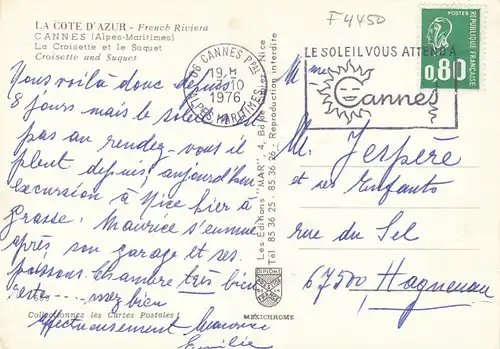 LA COTE D'AZUR - French Riviera
CANNES (Alpes-Maritimes)
La Croisette et le Suquet
Croisette and Suquet
Nous voilà donc depuis
8 jours mais le soleil
pas au rendez-vous il
pleut depuis aujourd'hui
excursion à Nice hier à
Grasse. Maurice s'ennuie
après son garage et ses
poissons. Chambre très bien
reste assez bien
Affectueusement Maurice
Emilie
Collectionnez les Cartes Postales !
Les Editions "MAR" 4, Nice
Tél 85 36 25 - 85 36 26 - Reproduction interdite
DIPLOME
FRANCE
MEXICHROME
F4450
06 CANNES PPAL
19 H
7-10
1976
ALPES MARITIMES
LE SOLEIL VOUS ATTEND A
Cannes
POSTES
REPUBLIQUE FRANCAISE
0,80
Mme
M. Jespère
et ses Enfants
rue du Sel
67500 Haguenau